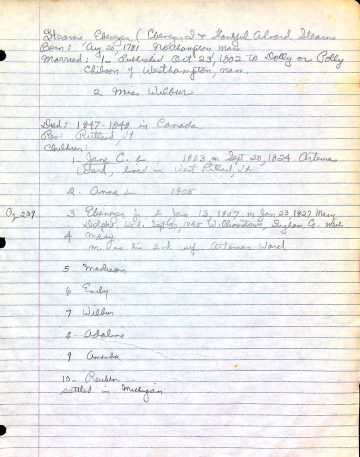 Stearns Ebenezer (Ebenezer) & Thankful Alvord Stearns
Born: Aug 26, 1781 Northampton Mass
Married: 1- Published Oct 23, 1802 to Dolly or Polly
Chilson of Westhampton, Mass.
2 Miss Wilbur
Died: 1847-1848 in Canada
Res: Rutland, Vt
Children:
1- Jane C. b 1803 m Sept 20, 1824 Artemas
Ward, lived in West Rutland, Vt
2. Anna b 1805
Pg 239 3 Ebenezer Jr b Jan 13, 1807 m Jan 23, 1827 Mary
1845 Williamstown, Ingham Co. Mich
4 Mary
m. as his 2nd wife, Artemas Ward
5 Madison
6 Emily
7 Wilbur
8- Adaline
9 Amanda
10- Reuben
settled in Michigan